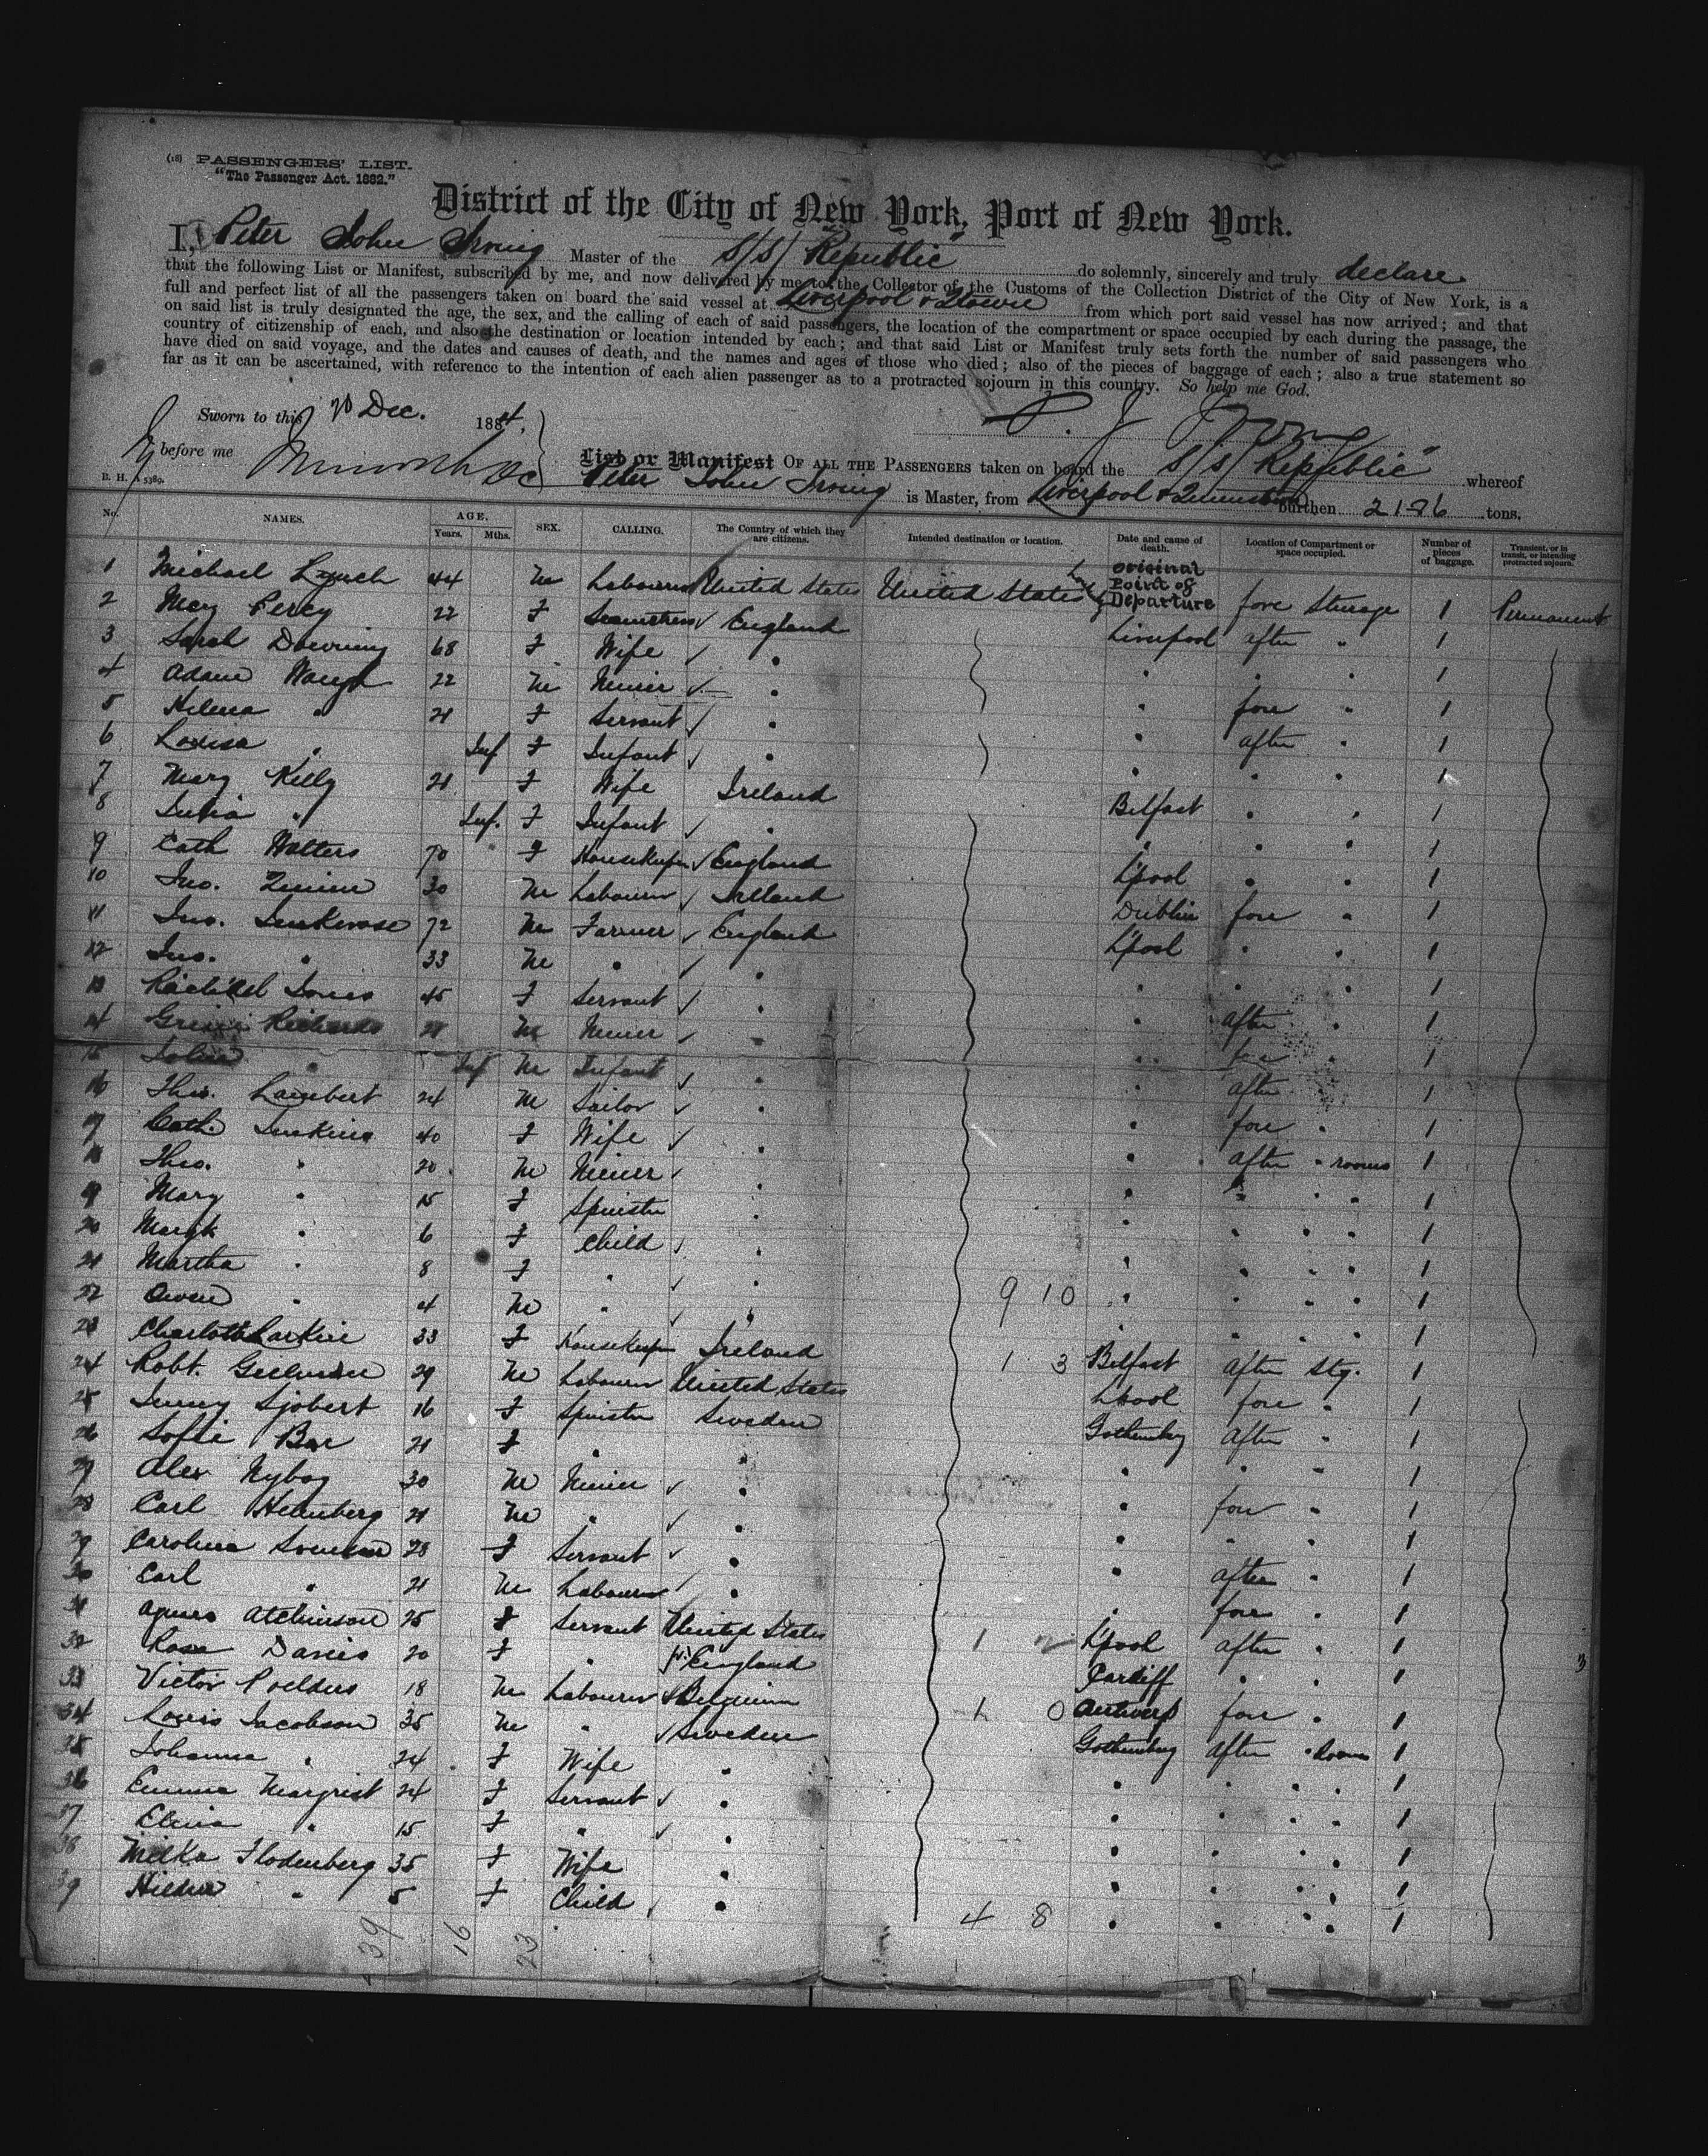 (18) PASSENGERS' LIST.
"The Passenger Act. 1882."
District of the City of New York, Port of New York.
I, Peter John Irving Master of the S/S/ Republic do solemnly, sincerely and truly declare
that the following List or Manifest, subscribed by me, and now delivered by me to the Collector of the Customs of the Collection District of the City of New York, is a
full and perfect list of all the passengers taken on board the said vessel at Liverpool & from which port said vessel has now arrived; and that
on said list is truly designated the age, the sex, and the calling of each of said passengers, the location of the compartment or space occupied by each during the passage, the
country of citizenship of each, and also the destination or location intended by each; and that said List or Manifest truly sets forth the number of said passengers who
have died on said voyage, and the dates and causes of death, and the names and ages of those who died; also of the pieces of baggage of each; also a true statement so
far as it can be ascertained, with reference to the intention of each alien passenger as to a protracted sojourn in this country. So help me God.
Sworn to this 20 Dec. 1884. P. J. Irving
before me
List or Manifest OF ALL THE PASSENGERS taken on board the S/S/ Republic whereof
B. H. A 5389. Peter John Irving is Master, from Liverpool & Queenstown burthen 2186 tons.
No. NAMES. AGE. Years. Mths. SEX. CALLING. The Country of which they are citizens. Intended destination or location. Date and cause of death. Location of Compartment or space occupied. Number of pieces of baggage. Transient, or in transit, or intending protracted sojourn.
original Point of Departure
1 Michael Lynch 44 M Labourer United States United States fore Steerage 1 Permanent
2 Mary Percy 22 F Seamstress England Liverpool after " 1
3 Sarah Downing 68 F Wife " " " " 1
4 Adam Waugh 22 M Miner " " fore " 1
5 Helena " 21 F Servant " " after " 1
6 Louisa " Inf F Infant " " " " 1
7 Mary Kelly 21 F Wife Ireland Belfast " " 1
8 " Inf. F Infant " " " " 1
9 Cath Walters 70 F Housekeeper England L'pool " " 1
10 Jno. Quinn 30 M Labourer Ireland Dublin fore " 1
11 Jno. 72 M Farmer England L'pool " " 1
12 Jno. " 33 M " " " " " 1
13 Rachel Jones 45 F Servant " " after " 1
14 Richards 21 M Miner " " fore " 1
15 John " Inf M Infant " " after " 1
16 Thos. Lambert 24 M Sailor " " fore " 1
17 Cath. Jenkins 40 F Wife " " after " rooms 1
18 Thos. " 20 M Miner " " " " " 1
19 Mary " 15 F Spinster " " " " " 1
20 " 6 F Child " " " " " 1
21 Martha " 8 F " " 9 10 " " " " 1
22 Owen " 4 M " " " " " " 1
23 Charlotte Larkin 33 F Housekeeper Ireland 1 3 Belfast after Stg. 1
24 Robt. 29 M Labourer United States L'pool fore " 1
25 Jenny Sjobert 16 F Spinster Sweden Gothenburg after " 1
26 Sofie 21 F " " " " " 1
27 Alex Nyboy 30 M Miner " " fore " 1
28 Carl 21 M " " " " " 1
29 Carolina 28 F Servant " " after " 1
30 Carl " 21 M Labourer " " fore " 1
31 Agnes Atchinson 25 F Servant United States 1 2 L'pool after " 1
32 Rosa Davies 20 F " England Cardiff " " 1
33 Victor Poelders 18 M Labourer Belgium 1 0 Antwerp fore " 1
34 Louis Jacobson 35 M " Sweden Gothenburg after " Rooms 1
35 Johanna " 24 F Wife " " " " " 1
36 Emma Margrist 24 F Servant " " " " " 1
37 " 15 F " " " " " " 1
38 Milka Flodenberg 35 F Wife " " " " " 1
39 " 5 F Child " 4 8 " " " " 1
39 16 23
3